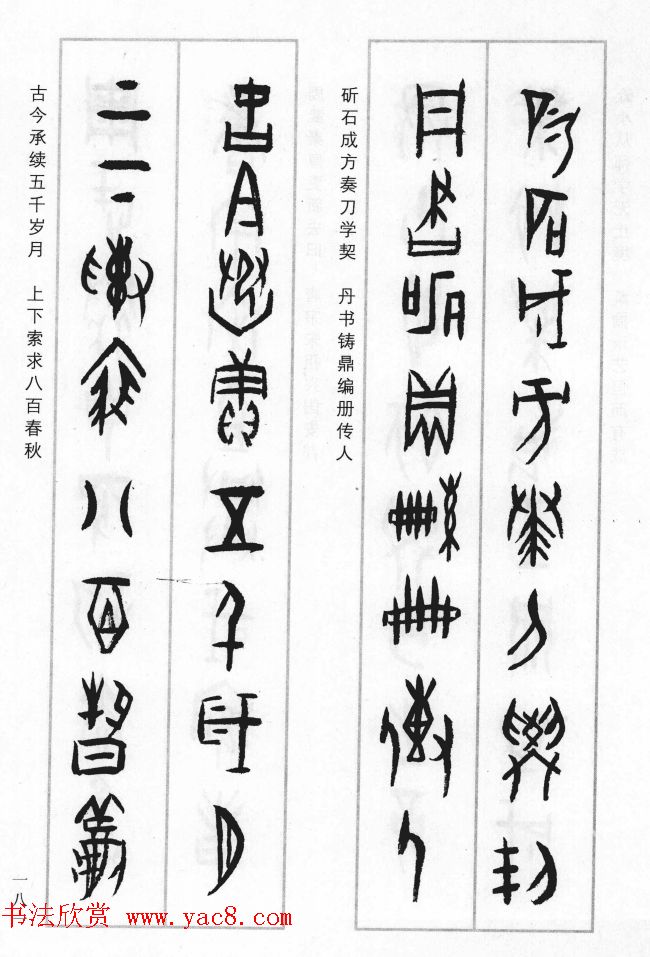 斫石成方奏刀学契 丹书铸鼎编册传人
古今承续五千岁月 上下索求八百春秋
一八
书法欣赏 www.yac8.com